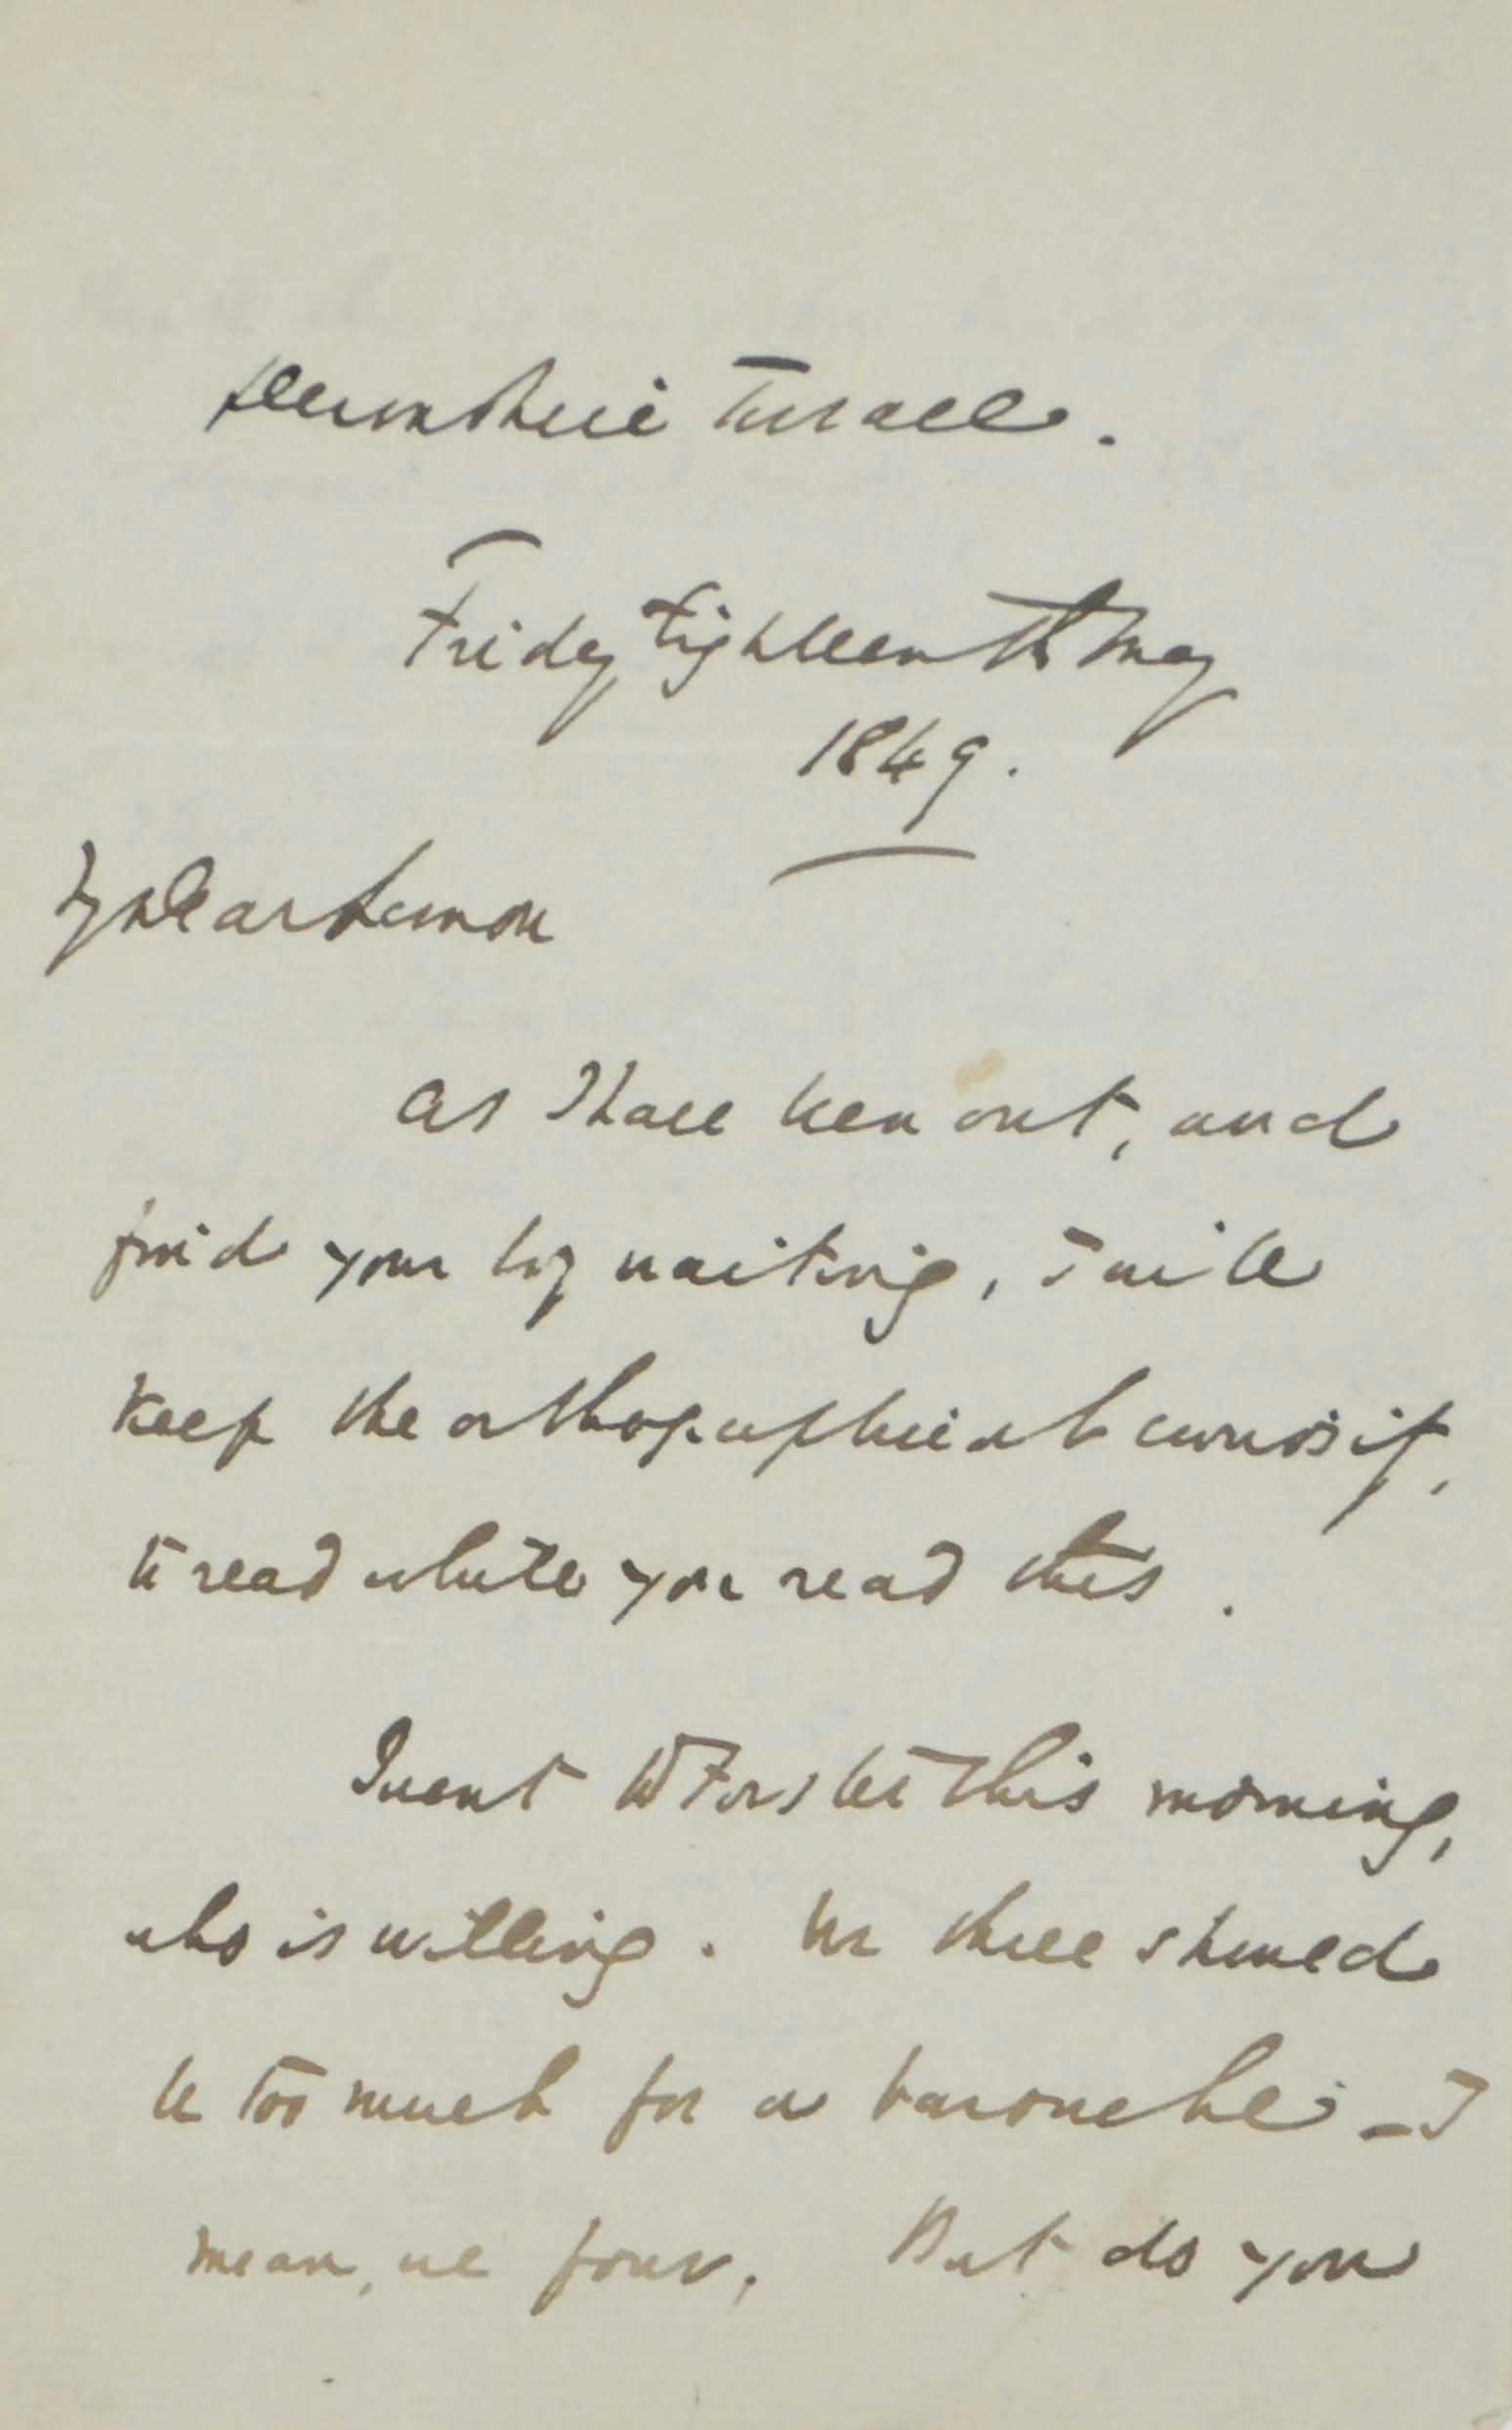 Devonshire Terrace.
Friday Eighteenth May
1849.
My Dear Lemon
As I have been out, and
find your boy waiting, I will
keep the orthographical curiosity,
to read while you read this.
I went to Forster this morning,
who is willing. We three should
be too much for a barouche – I
mean, we four. But do you